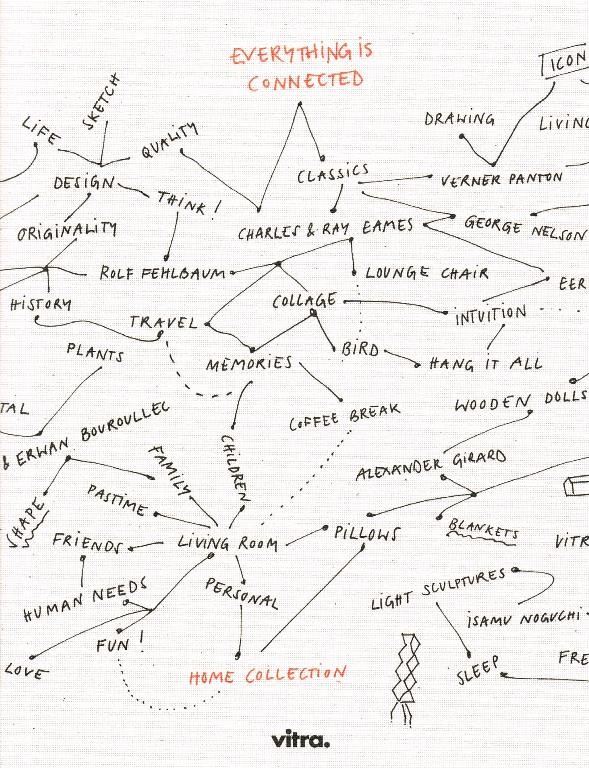 EVERYTHING IS
CONNECTED
ICON
SKETCH
LIFE
QUALITY
DRAWING
LIVING
DESIGN
THINK!
CLASSICS
VERNER PANTON
ORIGINALITY
CHARLES & RAY EAMES
GEORGE NELSON
ROLF FEHLBAUM
LOUNGE CHAIR
EER
HISTORY
COLLAGE
INTUITION
TRAVEL
PLANTS
MEMORIES
BIRD
HANG IT ALL
TAL
COFFEE BREAK
WOODEN DOLLS
& ERWAN BOUROULLEC
FAMILY
CHILDREN
ALEXANDER GIRARD
SHAPE
PASTIME
FRIENDS
LIVING ROOM
PILLOWS
BLANKETS
VITR
HUMAN NEEDS
PERSONAL
LIGHT SCULPTURES
ISAMU NOGUCHI
FUN!
LOVE
HOME COLLECTION
SLEEP
FRE
vitra.